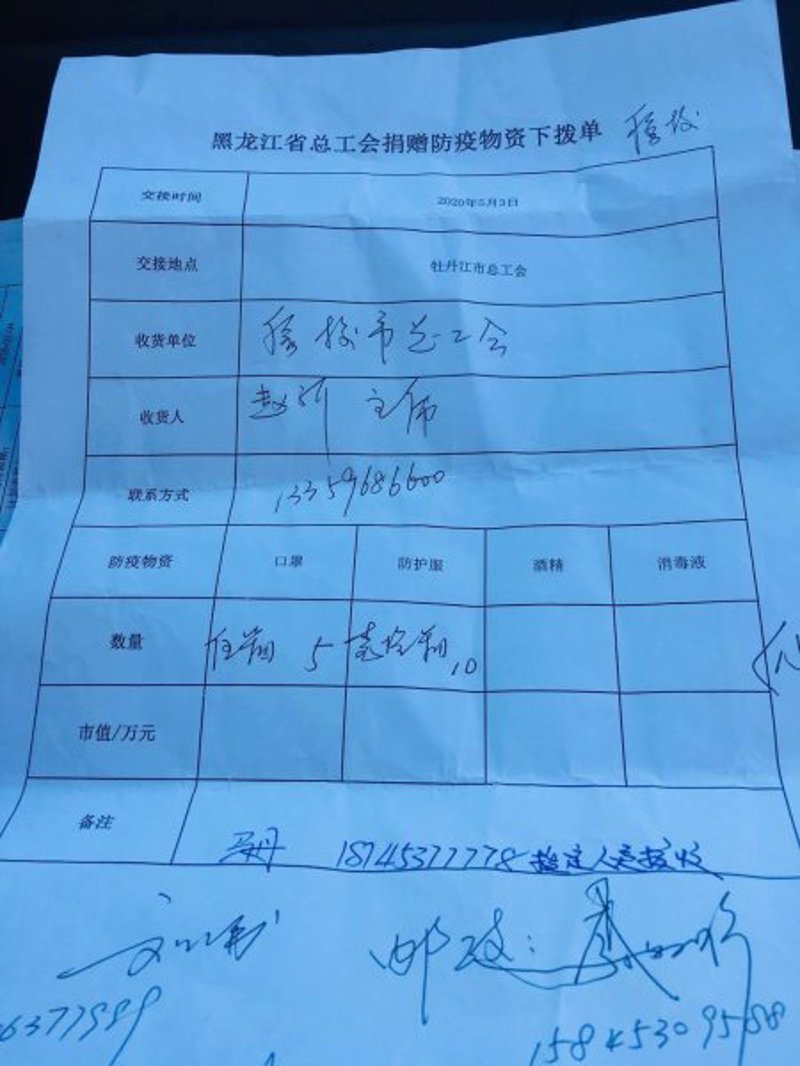 黑龙江省总工会捐赠防疫物资下拨单 穆棱
交接时间 2020年5月3日
交接地点 牡丹江市总工会
收货单位 穆棱市总工会
收货人 主席
联系方式 13359686600
防疫物资 口罩 防护服 酒精 消毒液
数量 5 10
市值/万元
备注
18745377778 指定人 接收
邮政:
6377999
15845309588